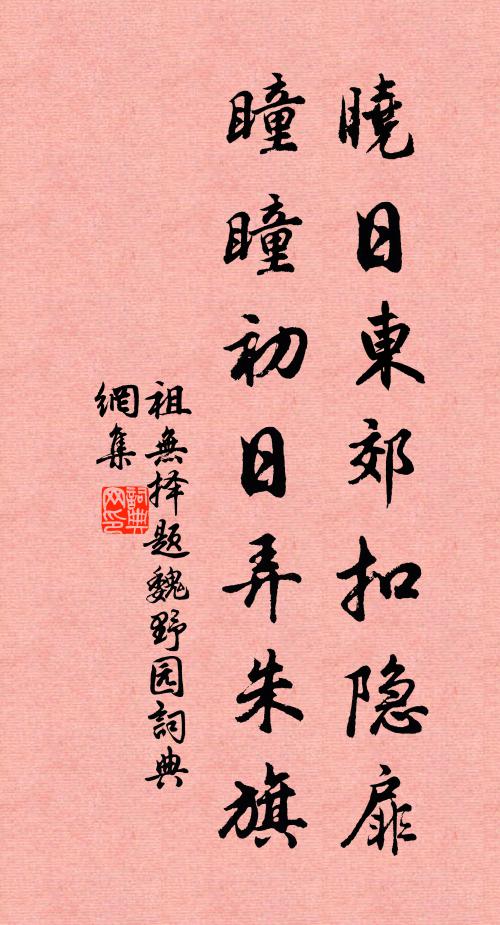 曉日東郊扣隐扉
瞳瞳初日弄朱旗
祖無择題魏野园詞典
網集
詞典
网印